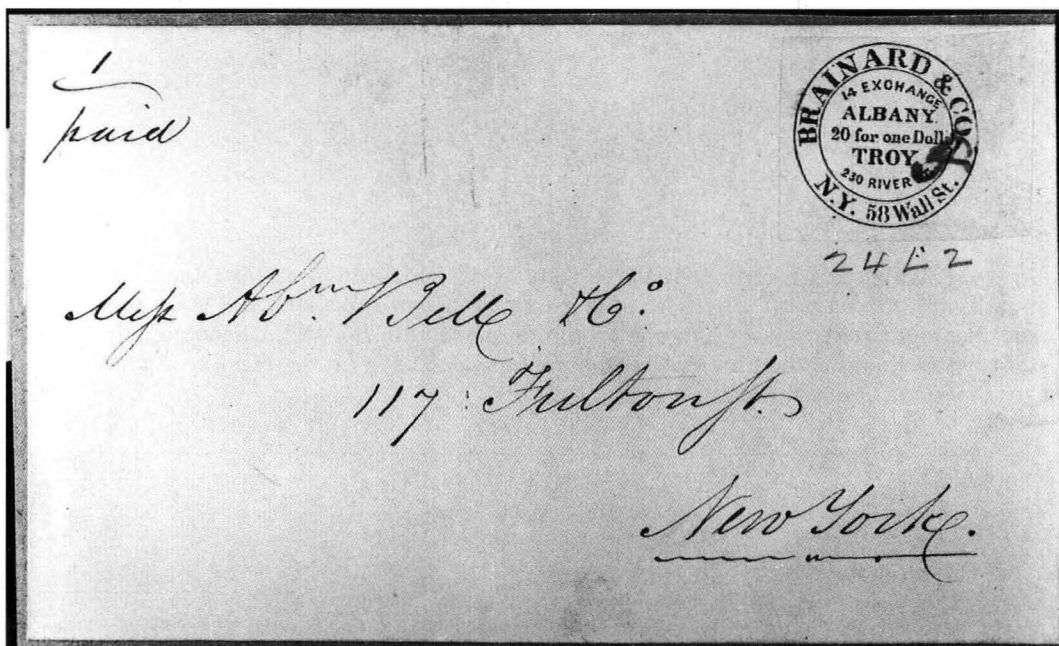 1
paid
BRAINARD & CO'S
14 EXCHANGE
ALBANY.
20 for one Doll.
TROY
230 RIVER
N.Y. 58 Wall St.
24L2
Mess Abm. Bell & Co.
117 Fulton St.
New York.